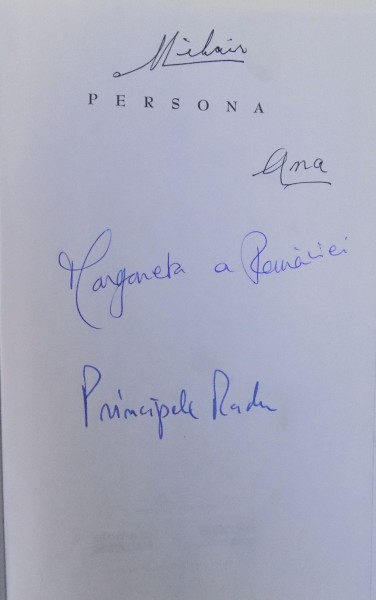 Mihai R
PERSONA
Ana
Margareta a României
Principele Radu